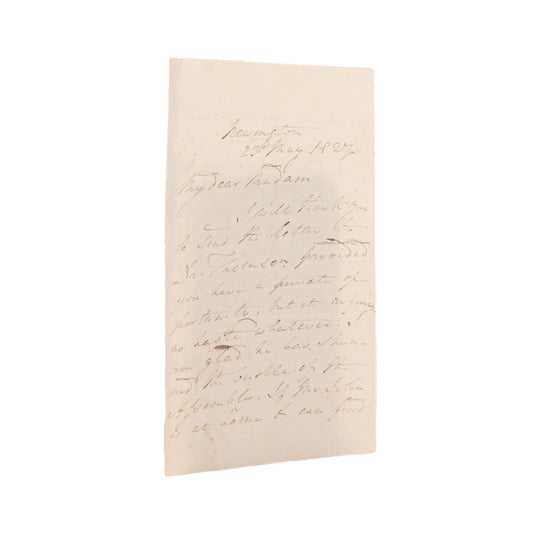 Newington
23d May 1827
My dear Madam
I will thank you
to send the letter to
Dr. Thomson, provided
you have a private op-
portunity, but it requires
no haste whatever. I
am glad he has shun-
ned the bustle of the
Assembly. If Mr John
is at home & can find